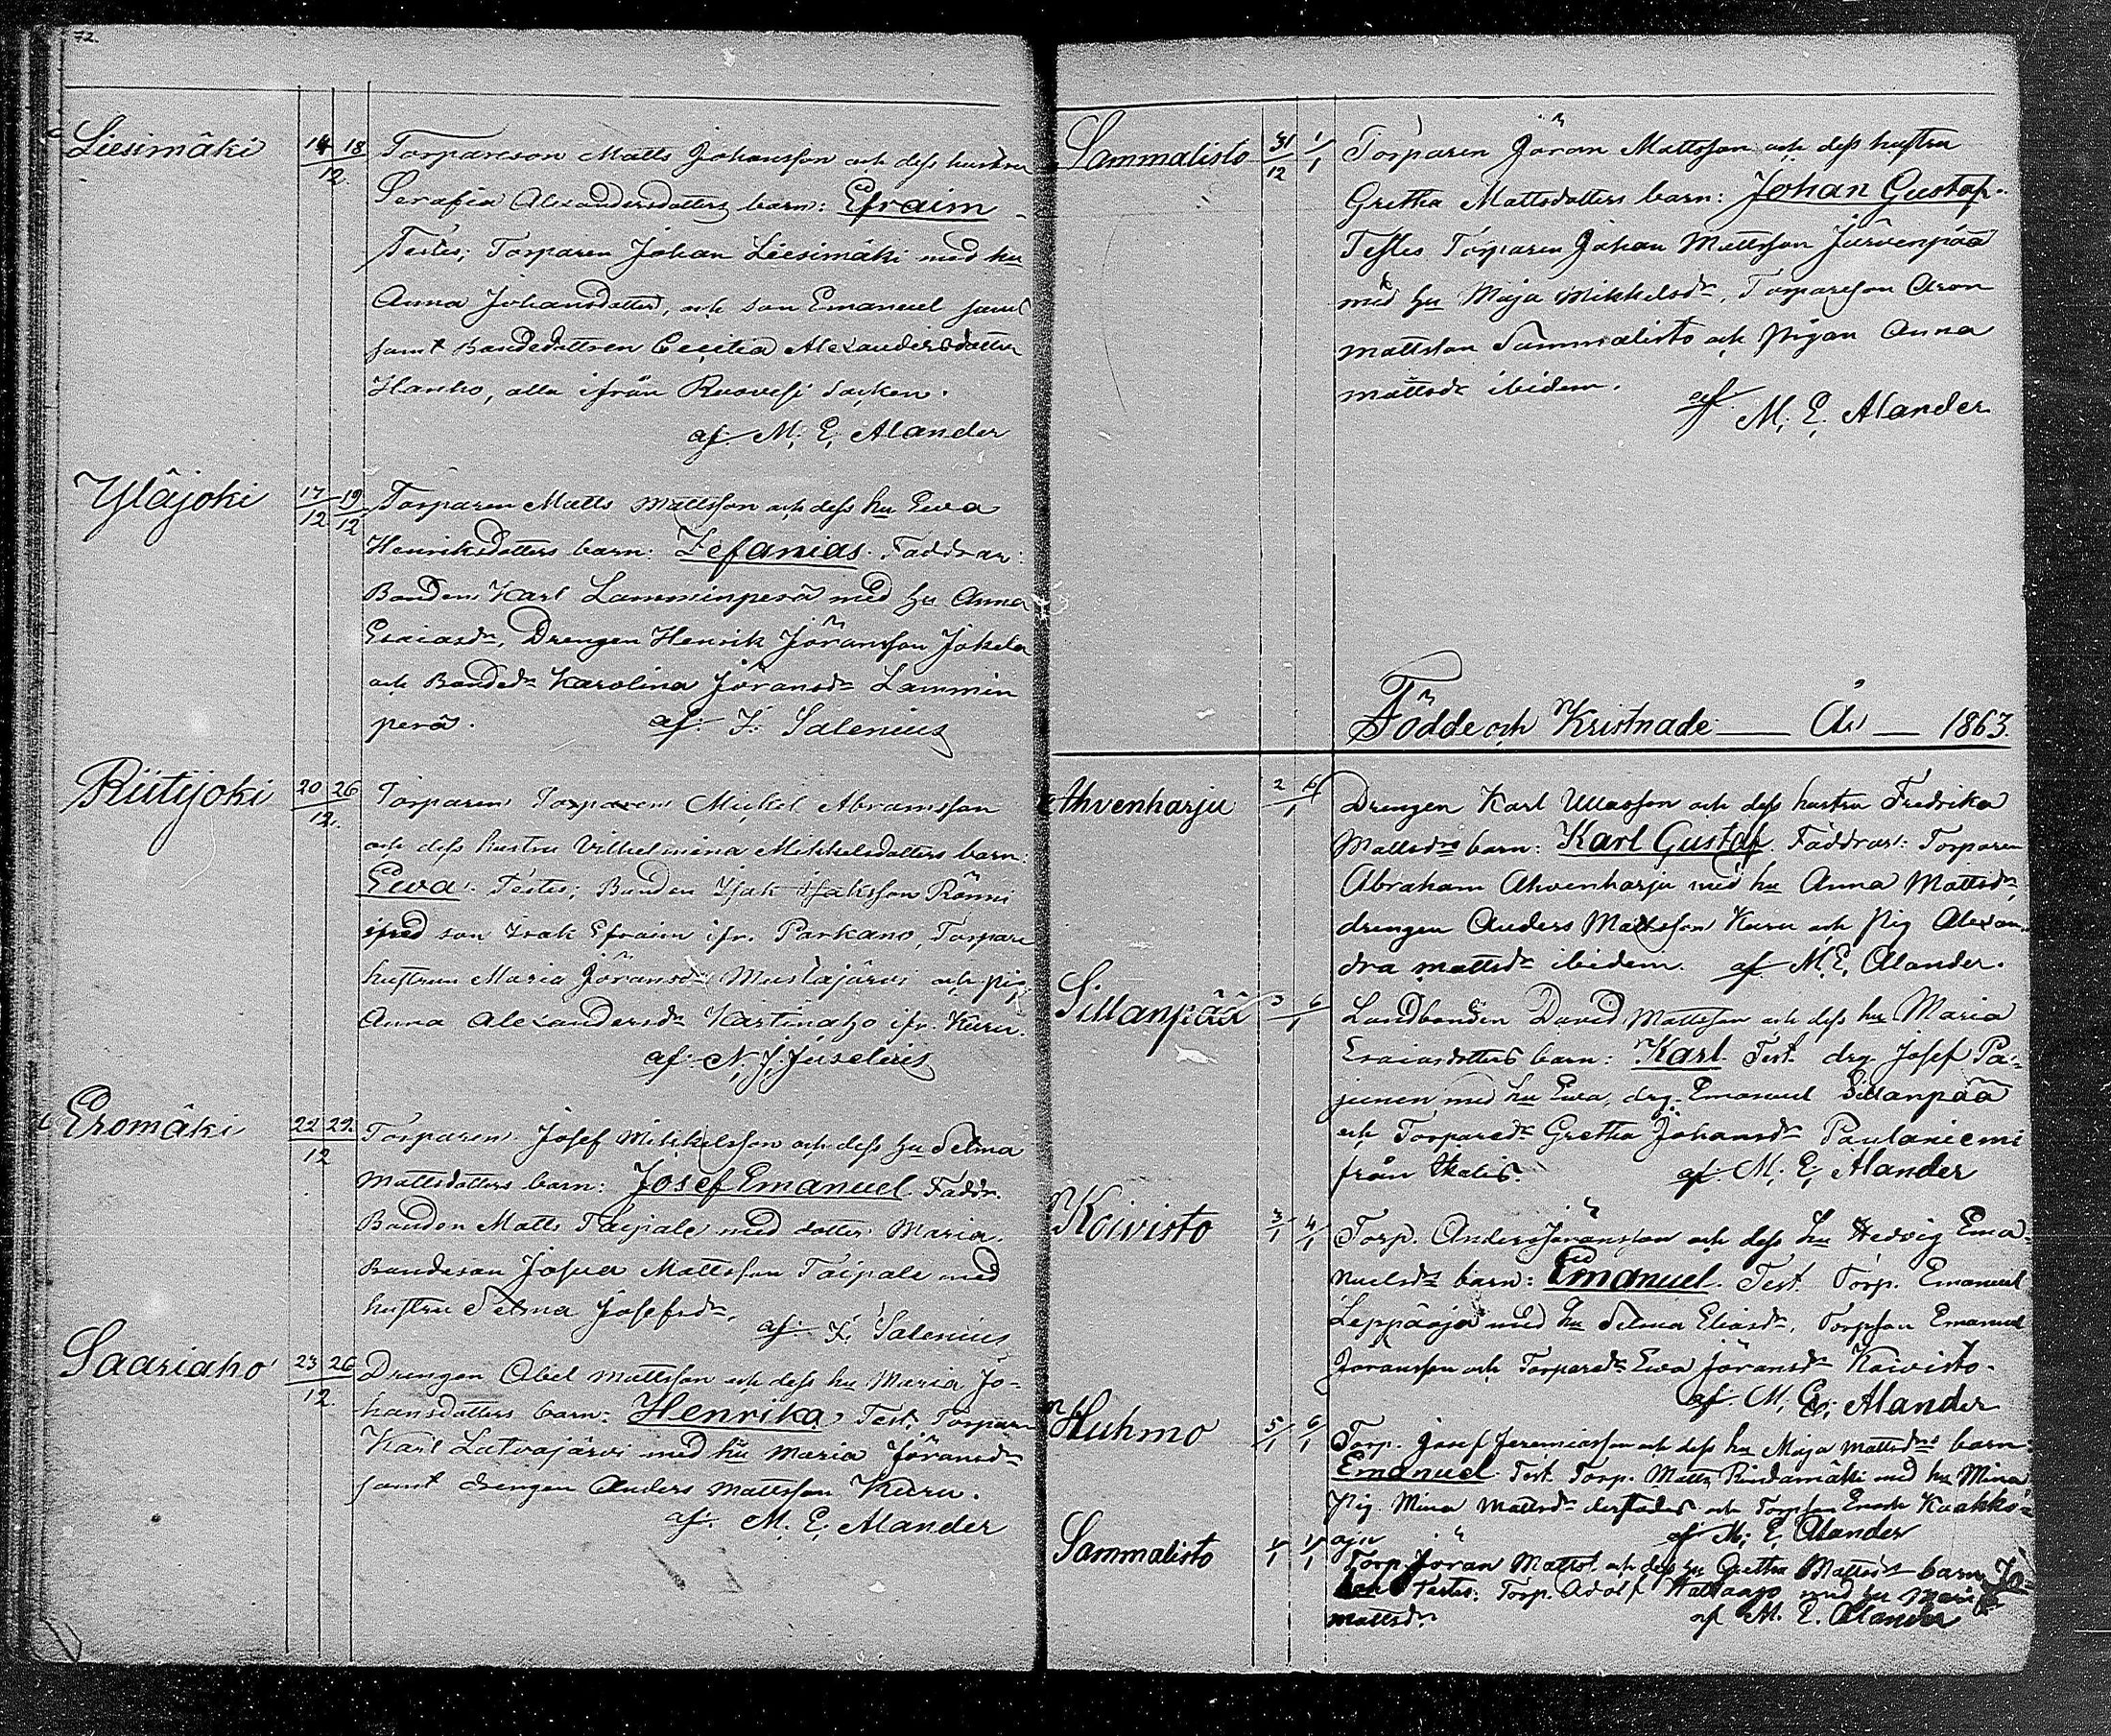 72.
Liesimäki 14 18/12 Torpareson Matts Johansson och dess hustru
Serafia Alexandersdotters barn: Efraim
Testes; Torparen Johan Liesimäki med hu
Anna Johansdotter, och son Emanuel
samt Bondedottren Cecilia Alexandersdotter
Hanho, alla ifrån Ruovesi Socken.
af M. E. Alander
Yläjoki 17/12 19/12 Torparen Matts Mattsson och dess hu Ewa
Henriksdotters barn: Zefanias. Faddrar:
Bonden Karl Lamminperä med hu Anna
Esaiasdr, Drengen Henrik Jöransson Jokela
och Bondedr Karolina Jöransdr Lammin
perä. af. F. Salenius
Riitijoki 20 26/12. Torparen Torparen Mickel Abramsson
och dess hustru Vilhelmina Mikkelsdotters barn:
Ewa. Testes; Bonden Isak Isaksson Rönni
med son Isak Efraim ifr. Parkano, Torpare
hustrun Maria Jöransdr Mustajärvi och pig
Anna Alexandersdr Kartinaho ifr. Kuru.
af. N. J. Juselius
Eromäki 22 29/12 Torparen Josef Mikkelsson och dess hu Selma
Mattsdotters barn: Josef Emanuel. Faddr.
Bonden Matts Taipale med dotter Maria,
Bondeson Josua Mattsson Taipale med
hustru Selma Josefsdr.
af F. Salenius
Saariaho 23 26/12. Drengen Abel Mattsson och dess hu Maria Jo-
hansdotters barn: Henrika, Test. Torparn
Karl Latvajärvi med hu Maria Jöransdr
samt drengen Anders Mattsson Kuru.
af. M. E. Alander
Sammalisto 31/12 1/1 Torparen Jöran Mattsson och dess hustru
Gretha Mattsdotters barn: Johan Gustaf.
Testes Torparen Johan Mattsson Järvenpää
med hu Maja Mikkelsdr, Torpareson Aron
Mattsson Sammalisto och Pigan Anna
Mattsdr ibidem.
af M. E. Alander
Födde och Kristnade — År — 1863.
Ahvenharju 2/1 6/1 Drengen Karl Ullasson och dess hustru Fredrika
Mattsdrs barn: Karl Gustaf. Faddrar: Torparen
Abraham Ahvenharju med hu Anna Mattsdr,
drengen Anders Mattsson Kuru och Pig Alexan-
dra Mattsdr ibidem. af M. E. Alander.
Sillanpää 3/1 6/1 Landbonden David Mattsson och dess hu Maria
Esaiasdotters barn: Karl. Test. drg. Josef Pa-
junen med hu Ewa, drg. Emanuel Sillanpää
och Torparedr Gretha Johansdr Paulaniemi
från Ikalis. af. M. E. Alander
Koivisto 3/1 4/1 Torp. Anders Jöransson och dess hu Hedvig Ema-
nuelsdrs barn: Emanuel. Test. Torp. Emanuel
Leppäoja med hu Selma Eliasdr, Torpson Emanuel
Jöransson och Torparedr Ewa Jöransdr Koivisto.
af. M. E. Alander
Huhmo 5/1 6/1 Torp. Josef Jeremiasson och dess hu Maja Mattsdrs barn:
Emanuel. Test. Torp. Matts Rindamäki med hu Mina
Pig. Mina Mattsdr derstädes och Torpson Enok Kaakko-
oja af M. E. Alander
Sammalisto 1/1 1/1 Torp. Jöran Mattss. och dess hu Gretha Mattsdrs barn Jo-
han Testes: Torp. Adolf med hu Maria
Mattsdr. af M. E. Alander